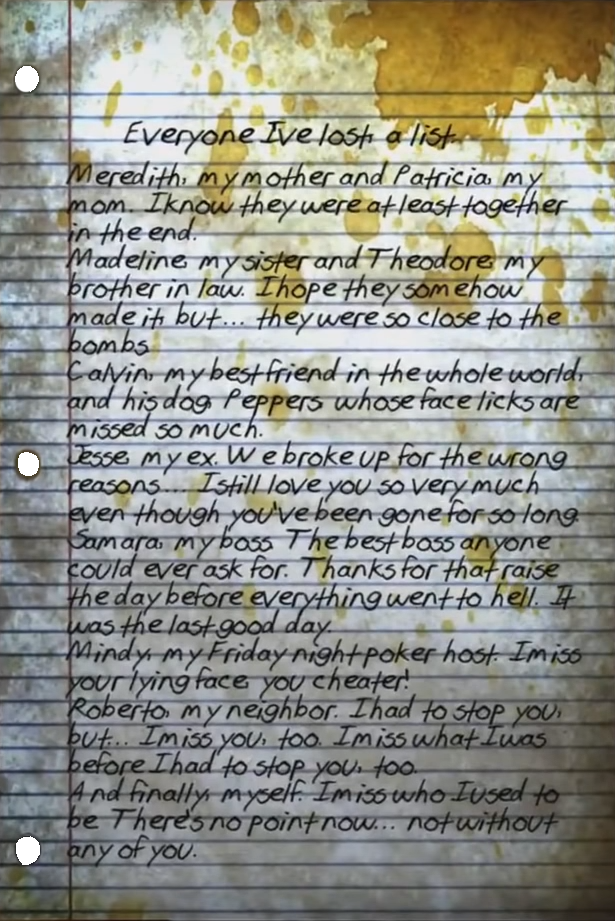 Everyone I've lost, a list.
Meredith, my mother and Patricia, my
mom. I know they were at least together
in the end.
Madeline, my sister and Theodore, my
brother in law. I hope they somehow
made it, but... they were so close to the
bombs.
Calvin, my best friend in the whole world,
and his dog, Peppers, whose face licks are
missed so much.
Jesse, my ex. We broke up for the wrong
reasons.... I still love you so very much
even though you've been gone for so long.
Samara, my boss. The best boss anyone
could ever ask for. Thanks for that raise
the day before everything went to hell. It
was the last good day.
Mindy, my Friday night poker host. I miss
your lying face, you cheater!
Roberto, my neighbor. I had to stop you,
but... I miss you, too. I miss what I was
before I had to stop you, too.
And finally, myself. I miss who I used to
be. There's no point now... not without
any of you.